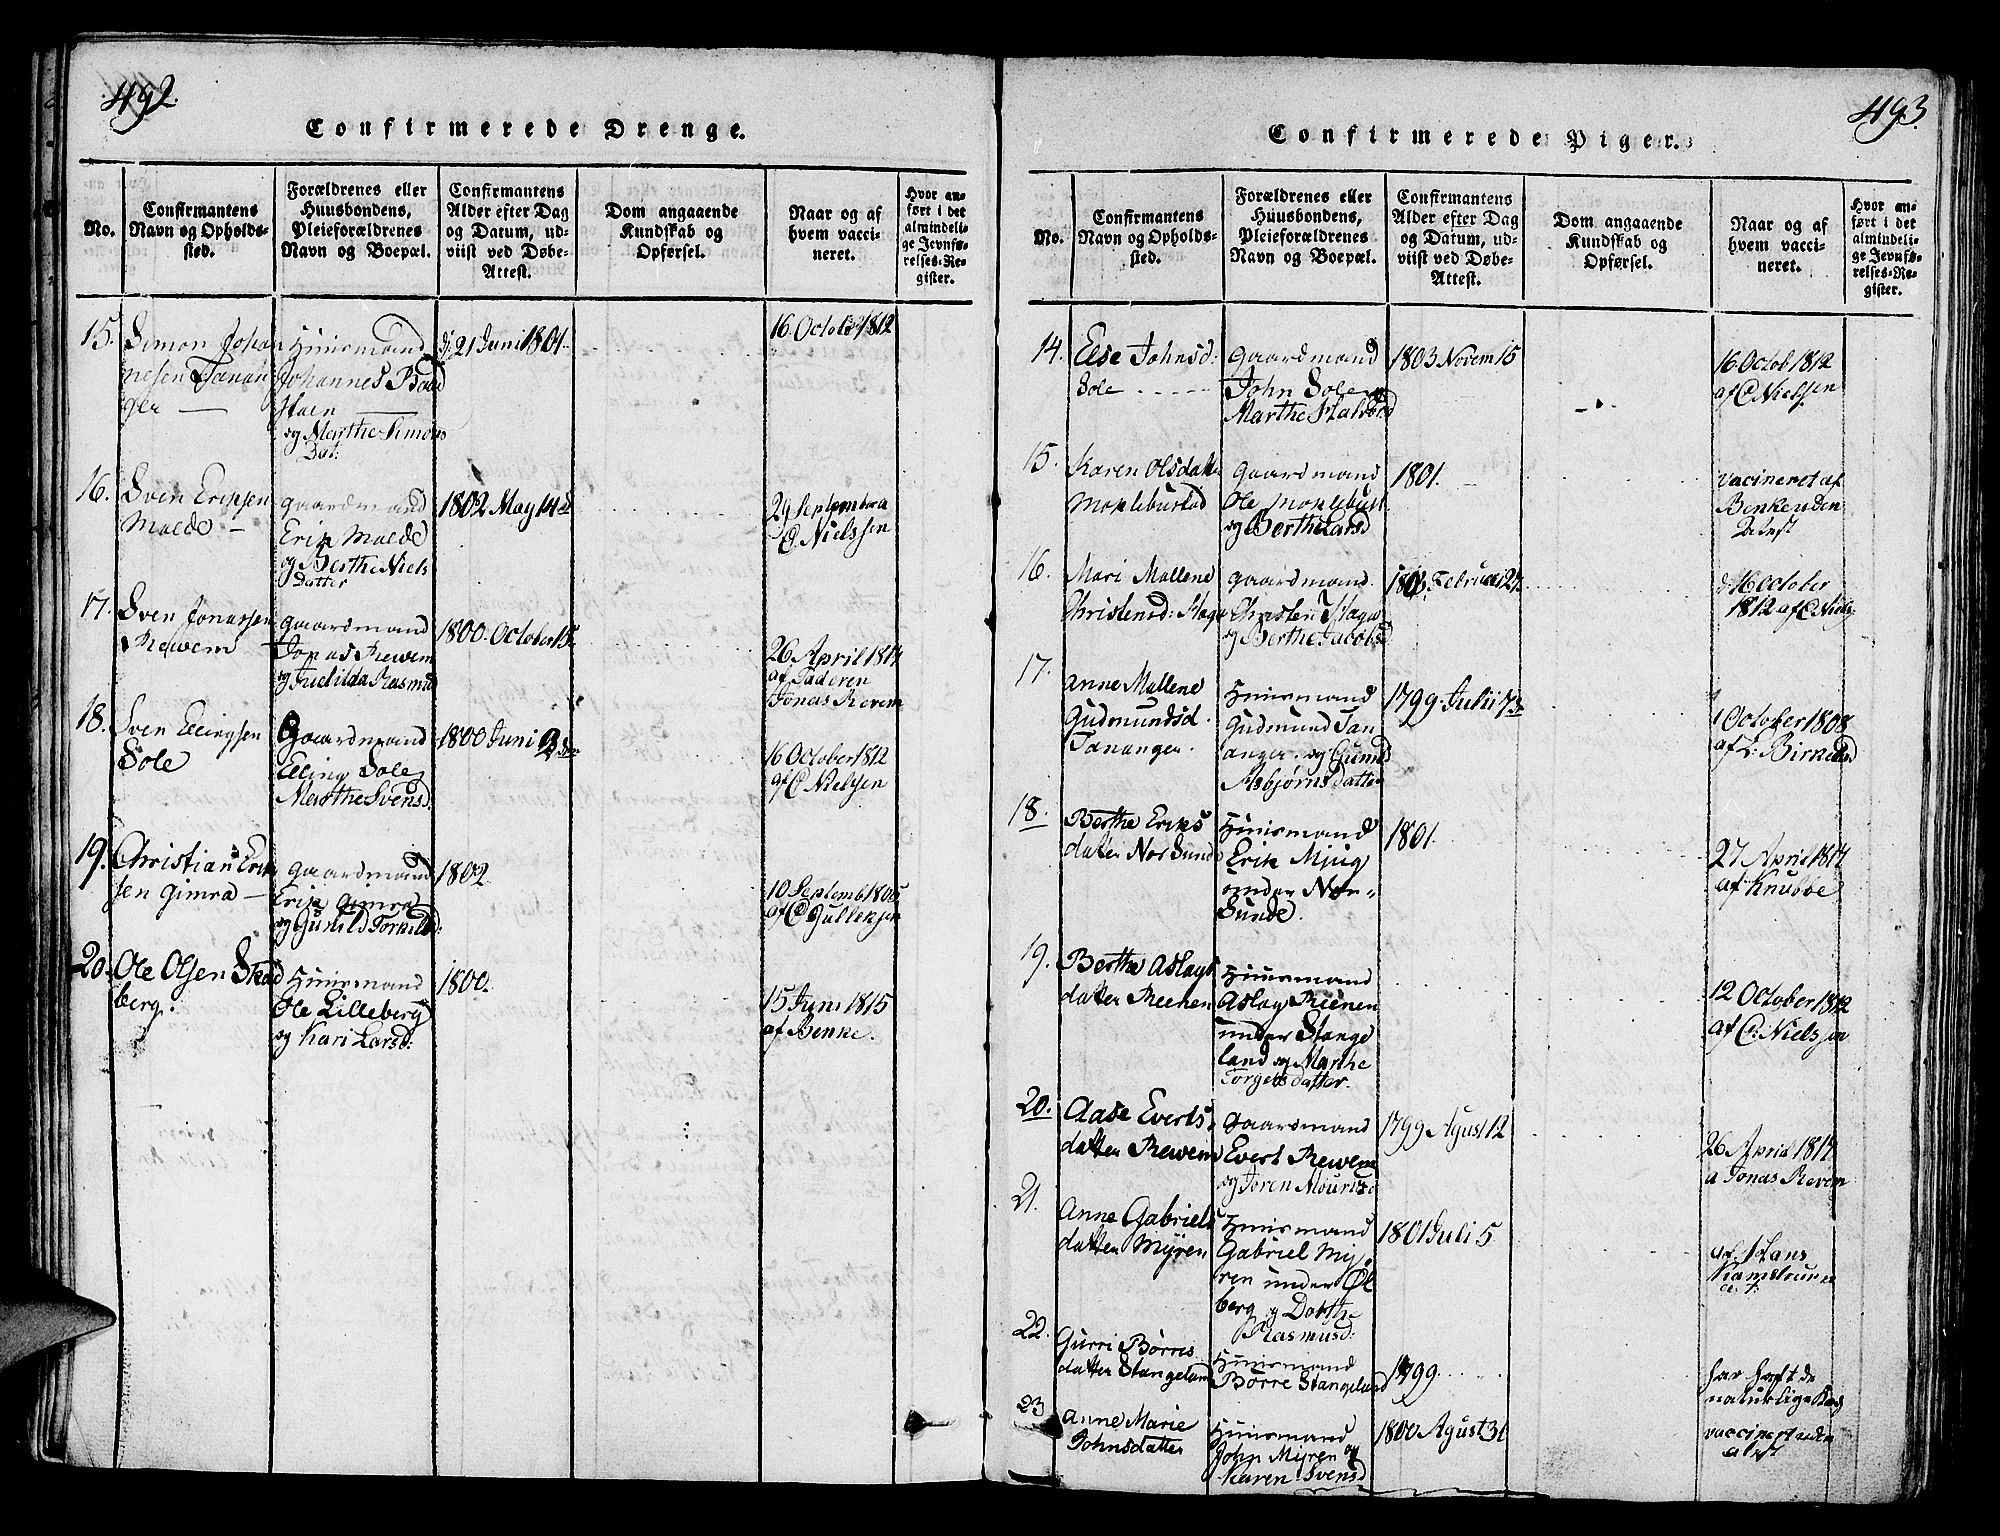 492.
Confirmerede Drenge.
No.
Confirmantens
Navn og Opholds-
sted.
Forældrenes eller
Huusbondens,
Pleieforældrenes
Navn og Boepæl.
Confirmantens
Alder efter Dag
og Datum, ud-
viist ved Døbe-
Attest.
Dom angaaende
Kundskab og
Opførsel.
Naar og af
hvem vacci-
neret.
Hvor an-
ført i det
almindeli-
ge Jevnfø-
relses-Re-
gister.
15.
Simon Johan
nesen Tanan
ger
Huusmand
Johannes
og Marthe Simons
Dat:
21 Juni 1801.
16 October 1812
16.
Sven Eriksen
Molde
gaardmand
Erik Molde
og Berthe Niels
Datter
1802 May 14
29 September a
C Nielssen
17.
Sven Jonassen
Rewem
gaardmand
Jonas Rewem
og Rasmusd
1800 October 15
26 April 1814
af Faderen
Jonas Revem
18.
Sven Ellingsen
Sole
Gaardmand
Elling Sole
Marthe Svensd
1800 Juni
16 October 1812
af C Nielsen
19.
Christian Erik
sen Gimra
gaardmand
Erik Gimra
og Gunild Torkildd:
1802
10 Septemb 1805
af C Gulleksen
20.
Ole Olsen Skad
berg.
Huusmand
Ole Lilleberg
og Kari Larsd:
1800.
15 Juni 1815
af Benke.
493.
Confirmerede Piger.
No.
Confirmantens
Navn og Opholds-
sted.
Forældrenes eller
Huusbondens,
Pleieforældrenes
Navn og Boepæl.
Confirmantens
Alder efter Dag
og Datum, ud-
viist ved Døbe-
Attest.
Dom angaaende
Kundskab og
Opførsel.
Naar og af
hvem vacci-
neret.
Hvor an-
ført i det
almindeli-
ge Jevnfø-
relses-Re-
gister.
14.
Else Johnsd:
Sole
gaardmand
John Sole og
Marthe
1803 Novem 15
16 Octob 1812
af C Nielsen
15.
Karen Olsdatter
Moklebustad
gaardmand
Ole Moklebust
og Berthe Larsd
1801.
vacineret af
Benke uden
Attest
16.
Mari Mallene
Christensd: Haga
gaardmand
Christen Haga
og Berthe Jacobsd
16 October
1812 af C Niels
17.
Anne Mallene
Gudmundsd.
Tananger.
Huusmand
Gudmund Tan
anger og Gunild
Asbjørnsdatter
1799 Julii 7
1 October 1808
af L. Birkeland
18.
Berthe Eriks
datter Nor Sunde
Huusmand
Erik Mjug
under Nor-
Sunde.
1801.
27 April 1814
af Knubbe
19.
Berthe Aslags
datter Reenen
Huusmand
Aslag Reenen
under Stange
land og Marthe
Torgersdatter.
12 October 1812
af C: Nielsen
20.
Aase Everts
datter Rewem
gaardmand
Evert Rewem
og Joren Mouritzd
1799 Agust 12
26 April 1814
a Jonas Revem
21.
Anne Gabriels
datter Myren
Huusmand
Gabriel My
ren under Øl
berg og Dorthe
Rasmusd:
1801 Juli 5
af Hans
22.
Gurri Børres
datter Stangeland
Huusmand
Børre Stangeland
1799
har haft de
naturlige
23
Anne Marie
Johnsdatter
Huusmand
John Myren og
Karen Svensd
1800 Agust 31
vaccineret uden
attest